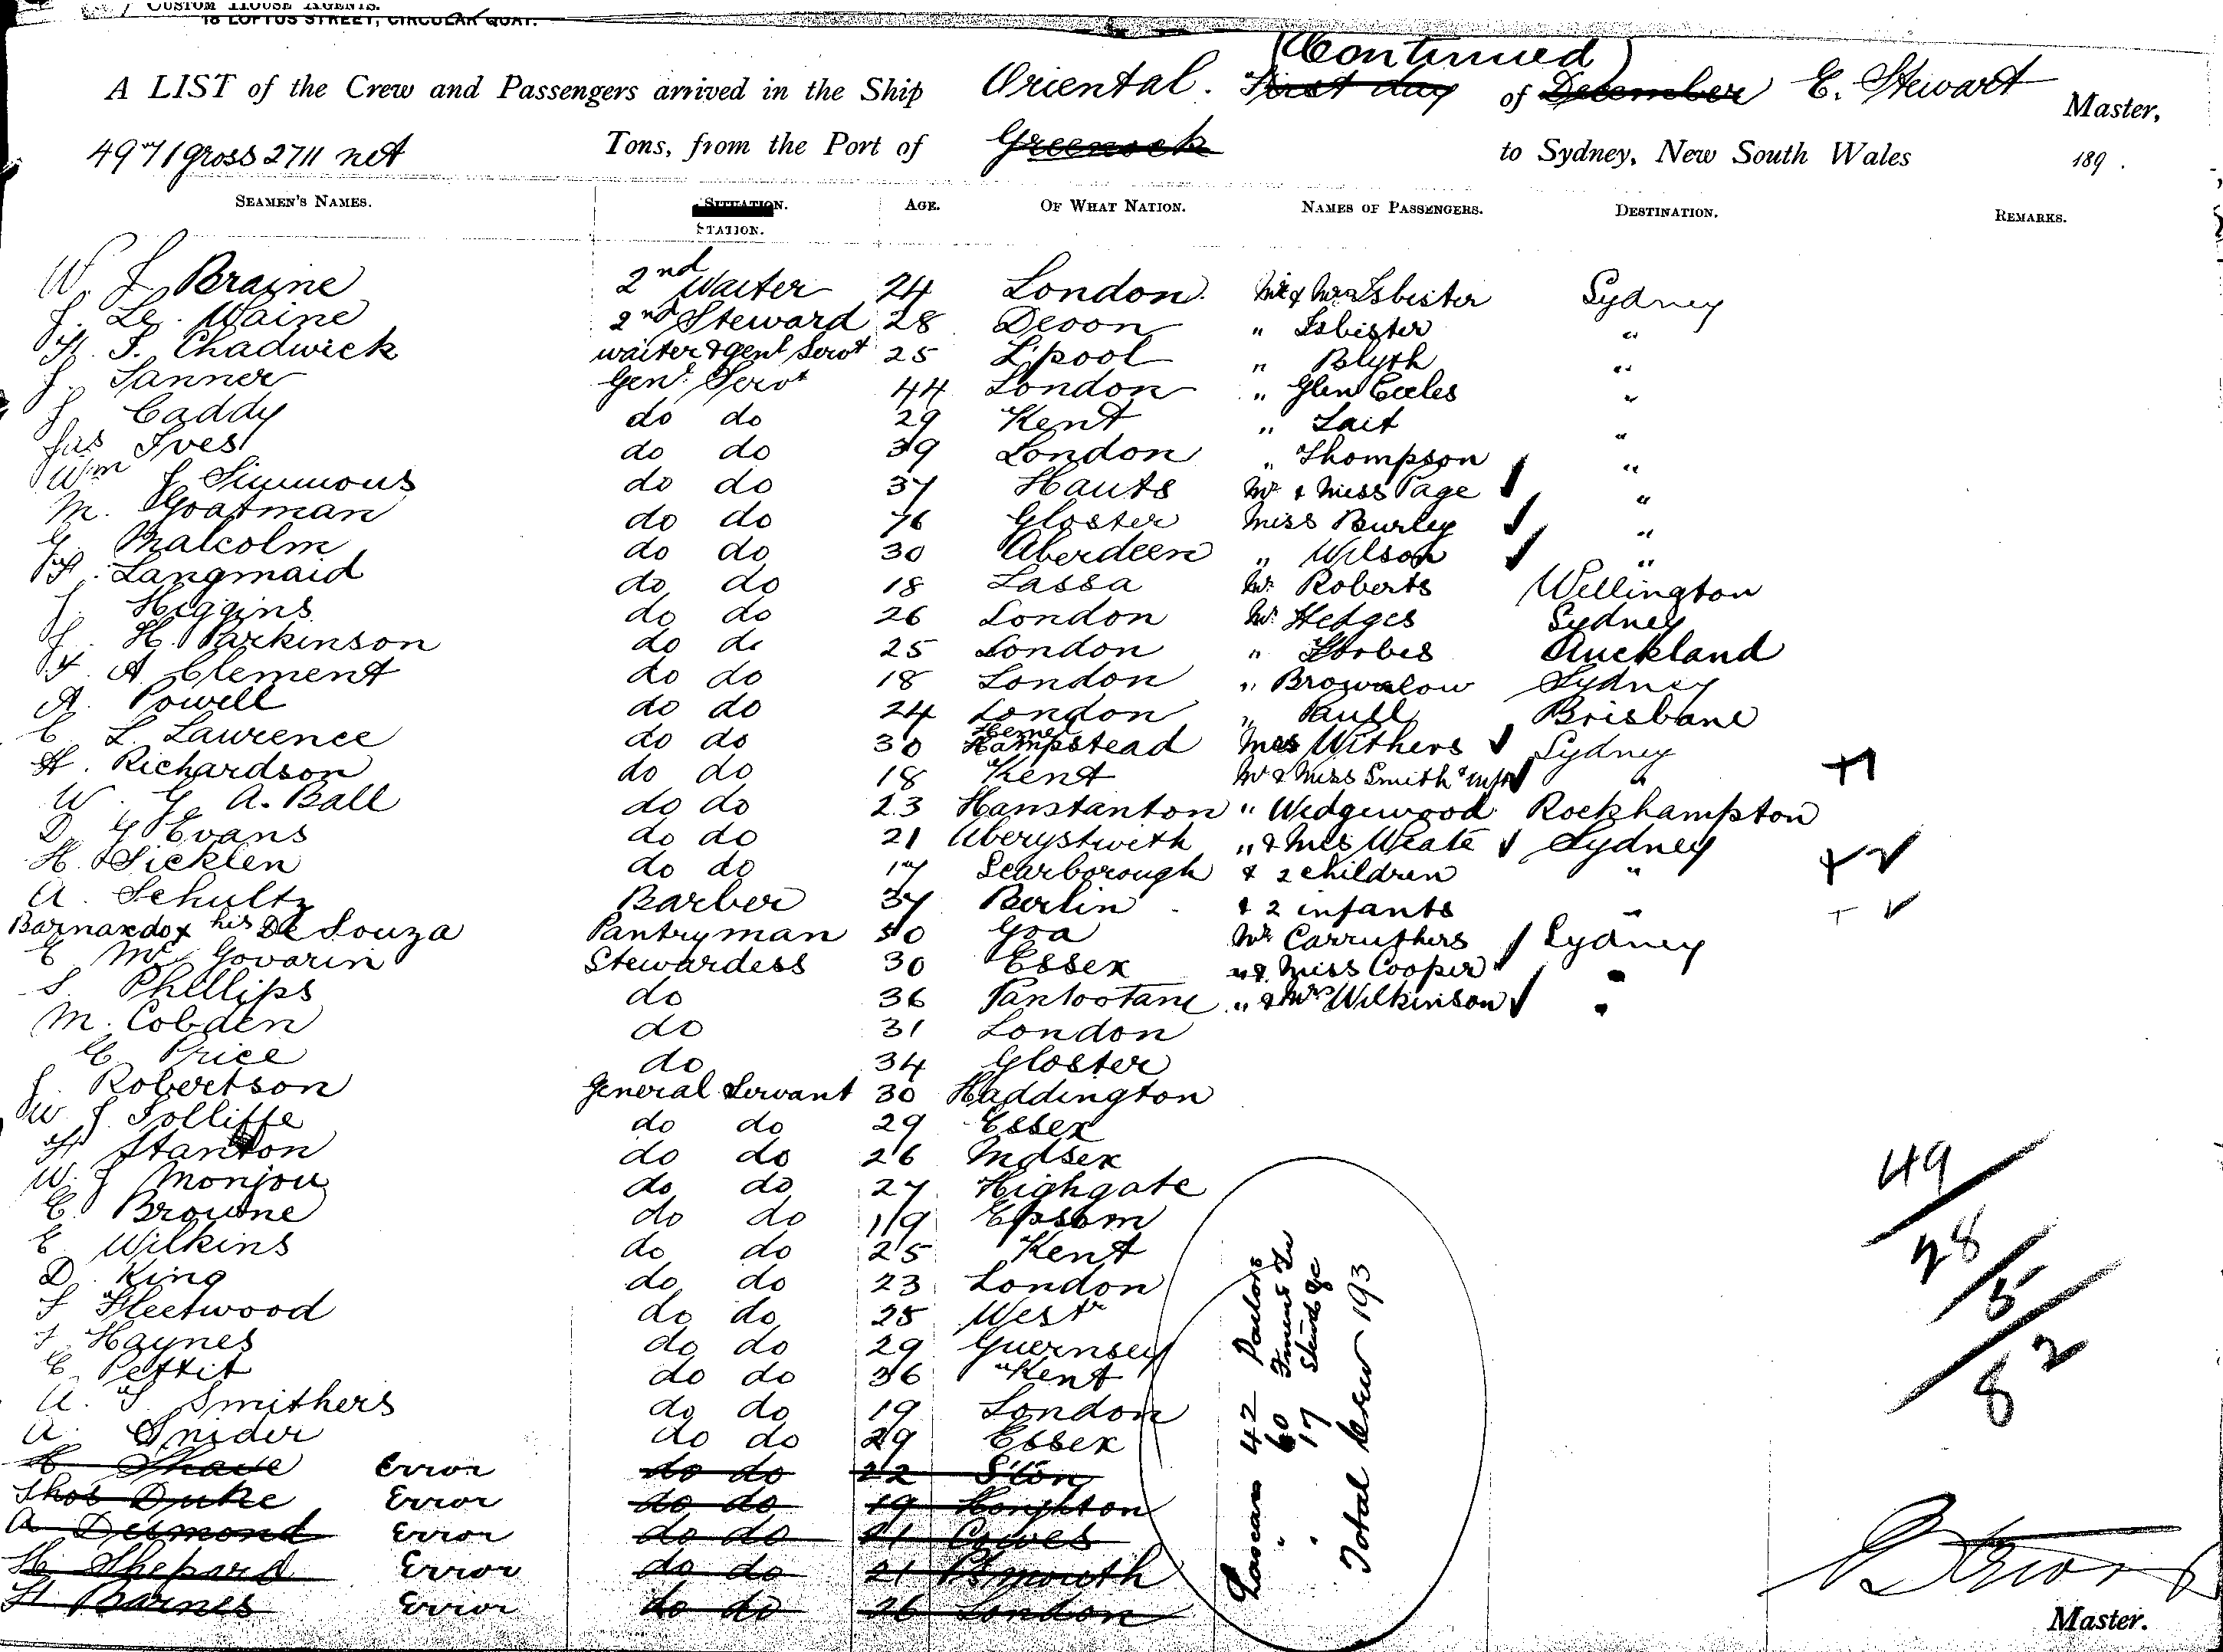 CUSTOM HOUSE AGENTS.
18 LOFTUS STREET, CIRCULAR QUAY.
(Continued)
A LIST of the Crew and Passengers arrived in the Ship Oriental. First day of December E. Stewart Master,
4971 gross 2711 net Tons, from the Port of Greenock to Sydney, New South Wales 189 .
SEAMEN'S NAMES. SITUATION. AGE. OF WHAT NATION. NAMES OF PASSENGERS. DESTINATION. REMARKS.
STATION.
W. J Braine 2nd Waiter 24 London. Mr & Mrs Isbister Sydney
J. Le. Waine 2nd Steward 28 Devon " Isbister "
H. J. Chadwick waiter & genl Servt 25 L'pool " Blyth "
J. Tanner Genl Servt 44 London " Glen Eccles "
J. Caddy do do 29 Kent " Lait "
Jas Ives do do 39 London " Thompson "
Wm J Simmons do do 37 Hants Mr & Miss Page "
M. Goatman do do 26 Gloster Miss Burley "
G. Malcolm do do 30 Aberdeen " Wilson "
Langmaid do do 18 Lassa Mr Roberts Wellington
J. Higgins do do 26 London Mr. Hedges Sydney
J. H. Parkinson do do 25 London " Forbes Auckland
F. A Clement do do 18 London " Brownlow Sydney
A. Powell do do 24 London " Paull Brisbane
C L. Lawrence do do 30 Hemel Hampstead Mrs Withers Sydney
H. Richardson do do 18 Kent Mr & Miss Smith & inft "
W. G. A. Ball do do 23 Hanstanton " Widgewood Rockhampton
D. G Evans do do 21 Aberystwith " & Mrs Weate Sydney
H. Sicklen do do 17 Scarborough & 2 children "
A. Schultz Barber 37 Berlin & 2 infants "
Barnardo x his De Souza Pantryman 50 Goa Mr Carruthers Sydney
E Mc Govarin Stewardess 30 Essex " & Miss Cooper "
S. Phillips do 36 " & Mrs Wilkinson "
M. Cobden do 31 London
E. Price do 34 Gloster
J. Robertson General Servant 30 Haddington
W J Jolliffe do do 29 Essex
H Stanton do do 26 Mdsex
W. J Monjou do do 27 Highgate
C. Browne do do 19 Epsom
E. Wilkins do do 25 Kent
D. King do do 23 London
J Fleetwood do do 25 Westr
F. Haynes do do 29 Guernsey
C. Pettit do do 36 Kent
A. J. Smithers do do 19 London
A. Snider do do 29 Essex
Shave Error do do 22 S'ton
Thos Duke Error do do 19 Houghton
A Desmond Error do do 21 Cowes
H. Shepard Error do do 21 P'smouth
H Barnes Error do do 26 London
Lascars 42 Sailors
" 60 Firemen
" 17 Stewds &c
Total Crew 193
49
28
5
82
Master.